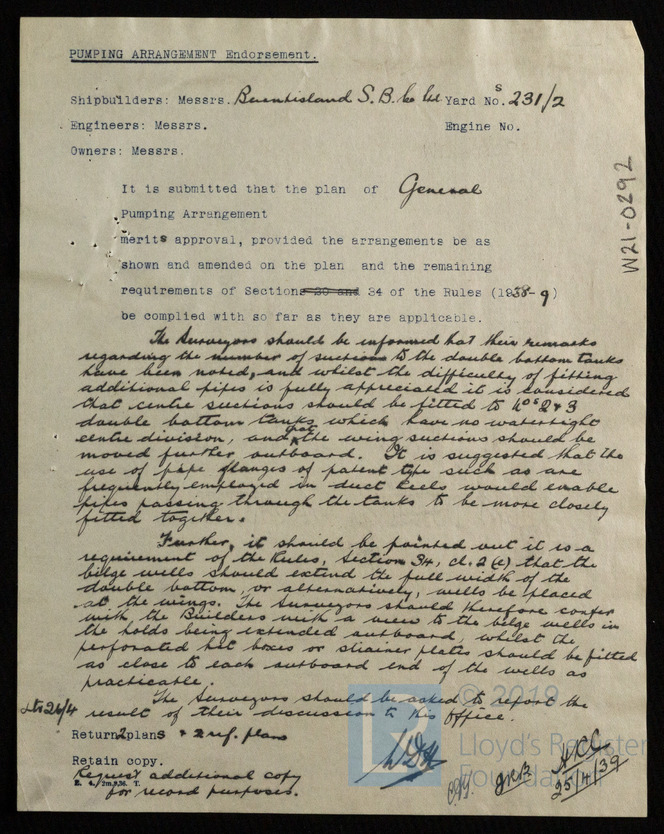 PUMPING ARRANGEMENT Endorsement.
Shipbuilders: Messrs. Burntisland S. B. Co Ltd Yard Nos. 231/2
Engineers: Messrs. Engine No.
Owners: Messrs.
It is submitted that the plan of General
Pumping Arrangement
merits approval, provided the arrangements be as
shown and amended on the plan and the remaining
requirements of Sections 20 and 34 of the Rules (1938-9)
be complied with so far as they are applicable.
The Surveyors should be informed that their remarks
regarding the number of suctions to the double bottom tanks
have been noted, and whilst the difficulty of fitting
additional pipes is fully appreciated it is considered
that centre suctions should be fitted to Nos 2 & 3
double bottom tanks which have no watertight
centre division, and that the wing suctions should be
moved further outboard. It is suggested that the
use of pipe flanges of patent type such as are
frequently employed in duct keels would enable
pipes passing through the tanks to be more closely
fitted together.
Further, it should be pointed out it is a
requirement of the Rules, Section 34, cl. 2 (c) that the
bilge wells should extend the full width of the
double bottom, or alternatively, wells be placed
at the wings. The Surveyors should therefore confer
with the Builders with a view to the bilge wells in
the holds being extended outboard, whilst the
perforated hat boxes or strainer plates should be fitted
as close to each outboard end of the wells as
practicable.
The Surveyors should be asked to report the
result of their discussion to this office.
Ltr 26/4
Return 2 plans & 2 ref. plans
Retain copy.
Request additional copy
for record purposes.
JRB
ACC
25/4/39
W21-0292
© 2019
Lloyd's Register
Foundation